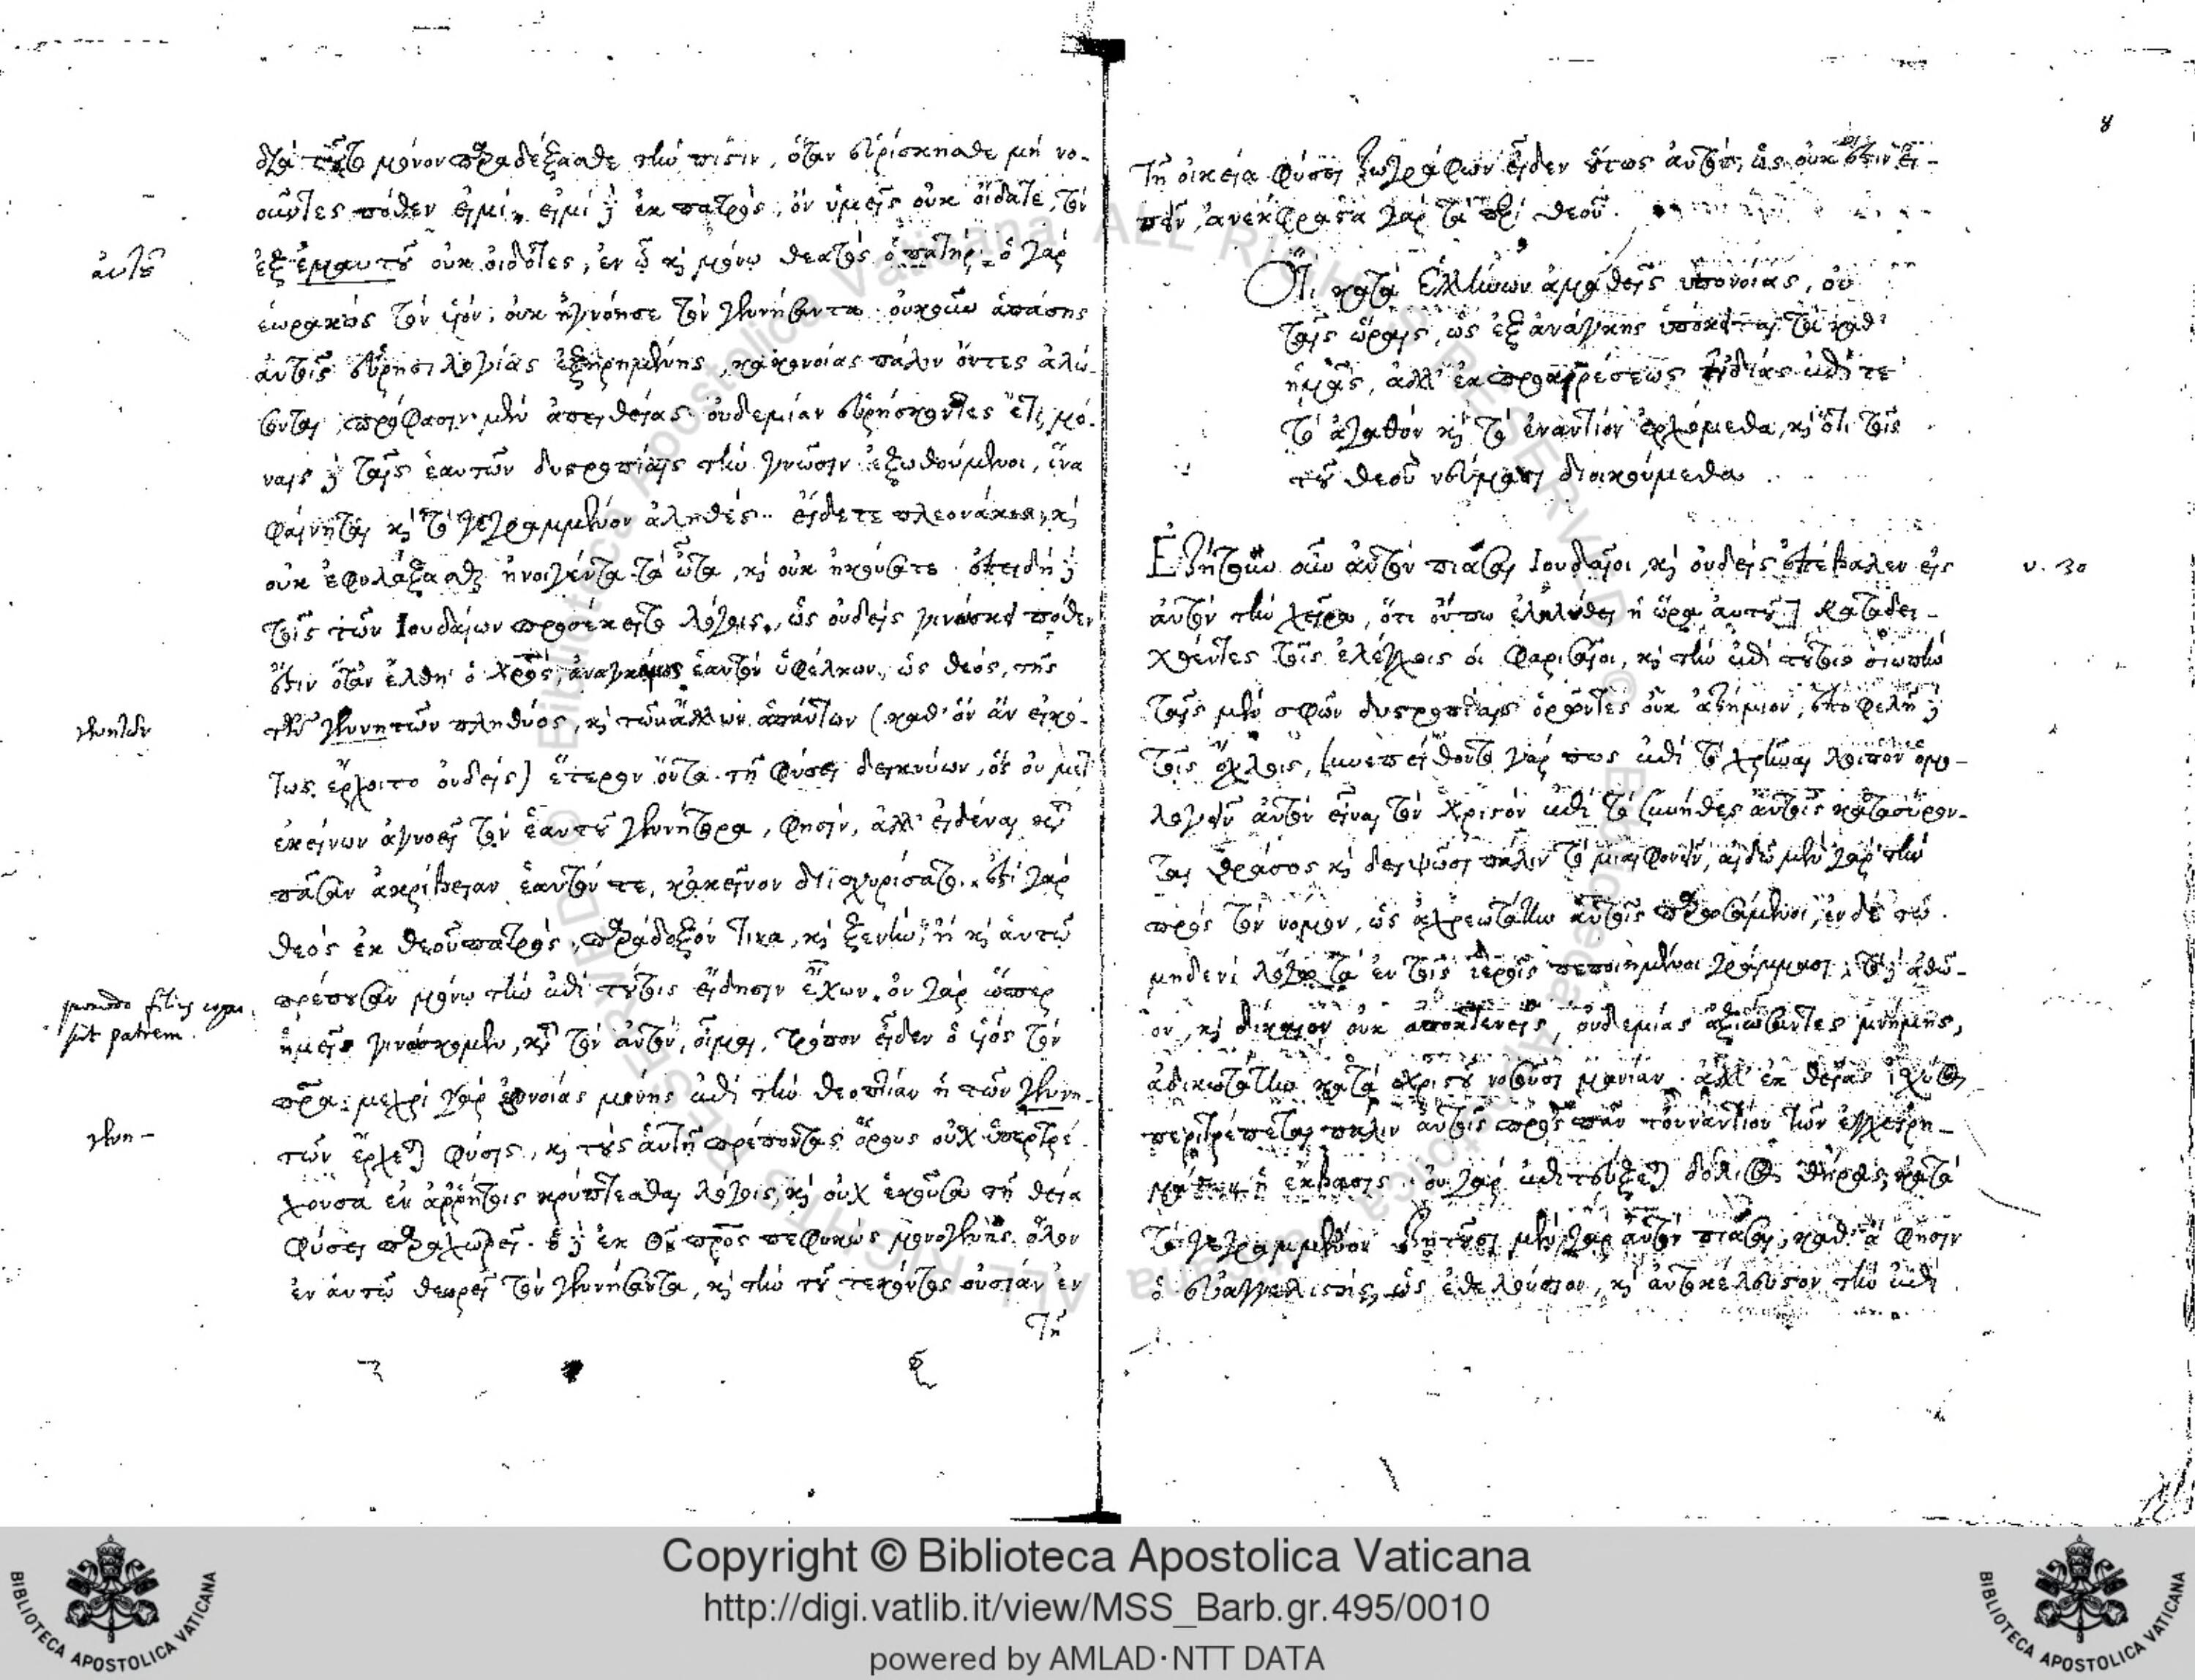 διὰ τοῦτο μόνον παραδέξασθε τὴν πίστιν, ὅταν εὑρίσκησθε μὴ νο-
οῦντες πόθεν εἰμί, εἰμὶ δὲ ἐκ πατρὸς, ὃν ὑμεῖς οὐκ οἴδατε, τὸν
αὐτοῦ
ἐξ ἐμαυτοῦ οὐκ εἰδότες, ἐν ᾧ καὶ μόνῳ θεατὸς ὁ πατήρ. ὁ γὰρ
ἑωρακὼς τὸν υἱὸν, οὐκ ἠγνόησε τὸν γεννήσαντα. οὐκοῦν ἁπάσης
αὐτοῖς εὑρησιλογίας ἐξῃρημένης, κακονοίας πάλιν ὄντες ἁλώ-
σονται, πρόφασιν μὲν ἀπειθείας οὐδεμίαν εὑρήσκοντες ἔτι, μό-
ναις δὲ ταῖς ἑαυτῶν δυστροπίαις τὴν γνῶσιν ἐξωθούμενοι, ἵνα
φαίνηται καὶ τὸ γεγραμμένον ἀληθές. εἴδετε πλεονάκις, καὶ
οὐκ ἐφυλάξασθε ἠνοιγμένα τὰ ὦτα, καὶ οὐκ ἠκούσατε. ἐπειδὴ δὲ
τοῖς τῶν Ἰουδαίων προσέκειτο λόγοις, ὡς οὐδεὶς γινώσκει πόθεν
ἐστὶν ὅταν ἔλθῃ ὁ Χριστὸς, ἀναγκαίως ἑαυτὸν ὑφέλκων, ὡς θεὸς, τῆς
γεννητῶν
τῶν γεννητῶν πληθύος, καὶ τῶν ἄλλων ἁπάντων (καθ' ὃν ἂν εἰκό-
τως ἔρχοιτο οὐδεὶς) ἕτερον ὄντα τῇ φύσει δεικνύων, ὃς οὐ μετ'
ἐκείνων ἀγνοεῖ τὸν ἑαυτοῦ γεννήτορα, φησὶν, ἀλλ' εἰδέναι κατὰ
πᾶσαν ἀκρίβειαν ἑαυτόν τε, κἀκεῖνον διισχυρίσατο. ἔστι γὰρ
θεὸς ἐκ θεοῦ πατρὸς, παράδοξόν τινα, καὶ ξένην, ἢ καὶ αὐτῷ
πρέπουσαν μόνῳ τὴν ἐπὶ τούτοις εἴδησιν ἔχων. οὐ γὰρ ὥσπερ
patrem
ἡμεῖς γινώσκομεν, κατὰ τὸν αὐτὸν, οἶμαι, τρόπον εἶδεν ὁ υἱὸς τὸν
πρα. μέχρι γὰρ ἐννοίας μόνης ἐπὶ τὴν θεοπτίαν ἡ τῶν γεννη-
γεννη-
τῶν ἔρχεται φύσις, καὶ τοὺς αὐτῇ πρέποντας ὅρους οὐχ ὑπερτρέ-
χουσα ἐν ἀρρήτοις κρύπτεσθαι λόγοις, καὶ οὐχ ἑκοῦσα τῇ θείᾳ
φύσει παραχωρεῖ. ὁ δὲ ἐκ Θυ προς πεφυκὼς μονογενὴς ὅλον
ἐν αὐτῷ θεωρεῖ τὸν γεννήσαντα, καὶ τὴν τοῦ τεκόντος οὐσίαν ἐν
τῇ
τῇ οἰκείᾳ φύσει ζωγράφων εἶδεν οὕτως αὐτὸν, ὡς οὐκ ἔστιν εἰ-
πεῖν, ἀνέκφραστα γὰρ τὰ περὶ θεοῦ.
Ὅτι κατὰ Ἑλλήνων ἀμαθεῖς ὑπονοίας, οὐ
ταῖς ὥραις, ὡς ἐξ ἀνάγκης ὑπόκειται τὰ καθ'
ἡμᾶς, ἀλλ' ἐκ προαιρέσεως ἰδίας ἐπί τε
τὸ ἀγαθὸν καὶ τὸ ἐναντίον ἐρχόμεθα, καὶ ὅτι τοῖς
τοῦ θεοῦ νεύμασι διοικούμεθα
Ἐζήτουν οὖν αὐτὸν πιάσαι Ἰουδαῖοι, καὶ οὐδεὶς ἐπέβαλεν εἰς
v. 30
αὐτὸν τὴν χεῖρα, ὅτι οὔπω ἐληλύθει ἡ ὥρα αὐτοῦ] Καταδει-
χθέντες τοῖς ἐλέγχοις οἱ Φαρισαῖοι, καὶ τὴν ἐπὶ τούτοις σιωπὴν
ταῖς μὲν σφῶν δυστροπίαις ὁρῶντες οὐκ ἀζήμιον, ἐπωφελῆ δὲ
τοῖς ὄχλοις, συνεπείθοντο γάρ πως ἐπὶ τὸ χρῆναι λοιπὸν ὁμο-
λογεῖν αὐτὸν εἶναι τὸν Χριστὸν ἐπὶ τὸ σύνηθες αὐτοῖς κατασύρον-
ται θράσος καὶ διψῶσι πάλιν τὸ μιαιφονεῖν, αἰδῶ μὲν γὰρ τὴν
πρὸς τὸν νόμον, ὡς ἀχρεωτάτην αὐτοῖς παρωσάμενοι, ἐν δὲ τῷ
μηδενὶ λόγῳ τὰ ἐν τοῖς ἱεροῖς πεποιημένοι γράμμασι, τὸ ἀθῷ-
ον, καὶ δίκαιον οὐκ ἀποκτενεῖς, οὐδεμίας ἀξιώσαντες μνήμης,
ἀδικωτάτην κατὰ χριστοῦ νοσοῦσι μανίαν. ἀλλ' ἐκ θείας ἰσχύος
περιτρέπεται πάλιν αὐτοῖς πρὸς πᾶν τοὐναντίον τῶν ἐγχειρη-
μάτων ἡ ἔκβασις. οὐ γὰρ ἐπιτεύξεται δόλιος θήρας, κατὰ
τὸ γεγραμμένον. ζητοῦσι μὲν γὰρ αὐτὸν πιάσαι, καθ' ἃ φησὶν
ὁ εὐαγγελιστής, ὡς ἐθελούσιον, καὶ αὐτοκέλευστον τὴν ἐπὶ
Copyright © Biblioteca Apostolica Vaticana
http://digi.vatlib.it/view/MSS_Barb.gr.495/0010
powered by AMLAD·NTT DATA